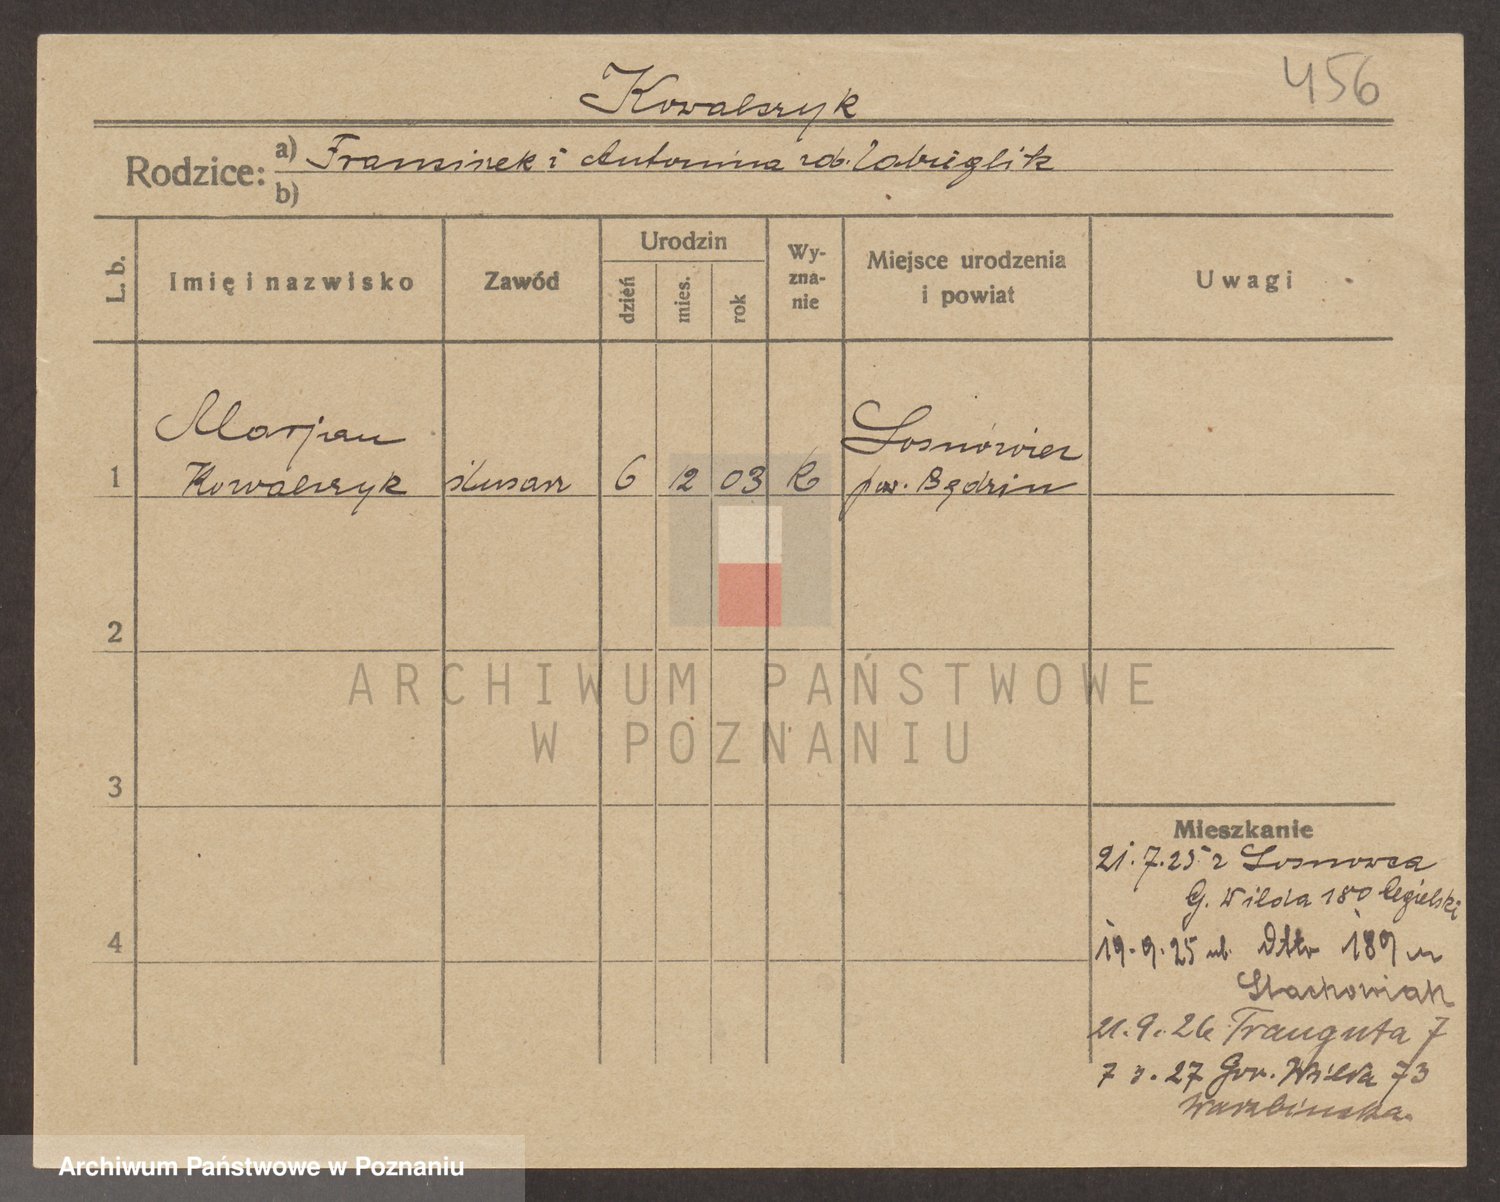 456
Kowalczyk
Rodzice: a) Franciszek i Antonina
b)
L. b.
Imię i nazwisko
Zawód
Urodzin
dzień
mies.
rok
Wy-
zna-
nie
Miejsce urodzenia
i powiat
Uwagi
1
Marjan
Kowalczyk
ślusarz
6
12
03
K
Sosnowiec
pow. Będzin
2
3
4
Mieszkanie
21.7.25 z Sosnowca
G. Wilda 180 Cegielski
19.9.25 189
Stachowiak
21.9.26 Trauguta 7
7 27 Gór. Wilda 73
ARCHIWUM PAŃSTWOWE
W POZNANIU
Archiwum Państwowe w Poznaniu